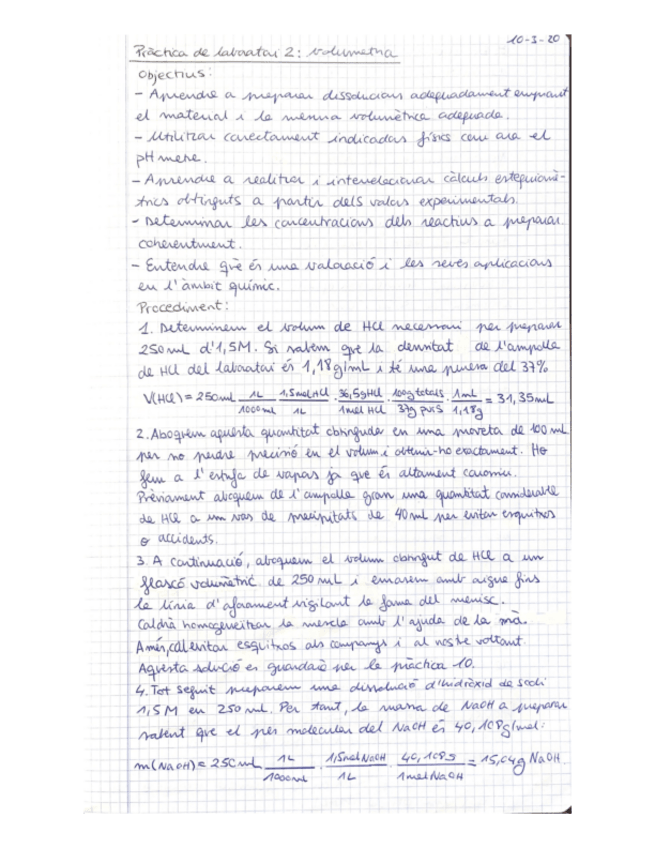 10-3-20
Pràctica de laboratori 2: volumetria
Objectius:
- Aprendre a preparar dissolucions adequadament emprant
el material i la mesura volumètrica adequada.
- Utilitzar correctament indicadors físics com ara el
pH metre.
- Aprendre a realitzar i interrelacionar càlculs estequiomè-
trics obtinguts a partir dels valors experimentals.
- Determinar les concentracions dels reactius a preparar
coherentment.
- Entendre què és una valoració i les seves aplicacions
en l'àmbit químic.
Procediment:
1. Determinem el volum de HCl necessari per preparar
250 mL d'1,5M. Si sabem que la densitat de l'ampolla
de HCl del laboratori és 1,18g/mL i té una puresa del 37%
V(HCl) = 250mL · 1L/1000mL · 1,5mol HCl/1L · 36,5gHCl/1mol HCl · 100g totals/37g purs · 1mL/1,18g = 31,35mL
2. Aboquem aquesta quantitat obtinguda en una proveta de 100 mL
per no perdre precisió en el volum i obtenir-ho exactament. Ho
fem a l'estufa de vapors ja que és altament corrosiu.
Prèviament aboquem de l'ampolla gran una quantitat considerable
de HCl a un vas de precipitats de 40 mL per evitar esquitxos
o accidents.
3. A continuació, aboquem el volum obtingut de HCl a un
flascó volumètric de 250 mL i enrasem amb aigua fins
la línia d'aforament vigilant la forma del menisc.
Caldrà homogeneïtzar la mescla amb l'ajuda de la mà.
A més, cal evitar esquitxos als companys i al nostre voltant.
Aquesta solució es guardarà per la pràctica 10.
4. Tot seguit preparem una dissolució d'hidròxid de sodi
1,5 M en 250 mL. Per tant, la massa de NaOH a preparar
sabent que el pes molecular del NaOH és 40,108g/mol:
m(NaOH) = 250 mL · 1L/1000mL · 1,5mol NaOH/1L · 40,108g/1mol NaOH = 15,04g NaOH